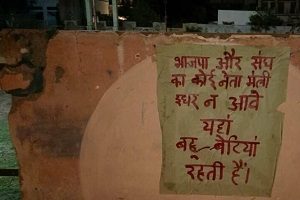 भाजपा और संघ
का कोई नेता मंत्री
इधर न आवे
यहां
बहू-बेटियां
रहती हैं।